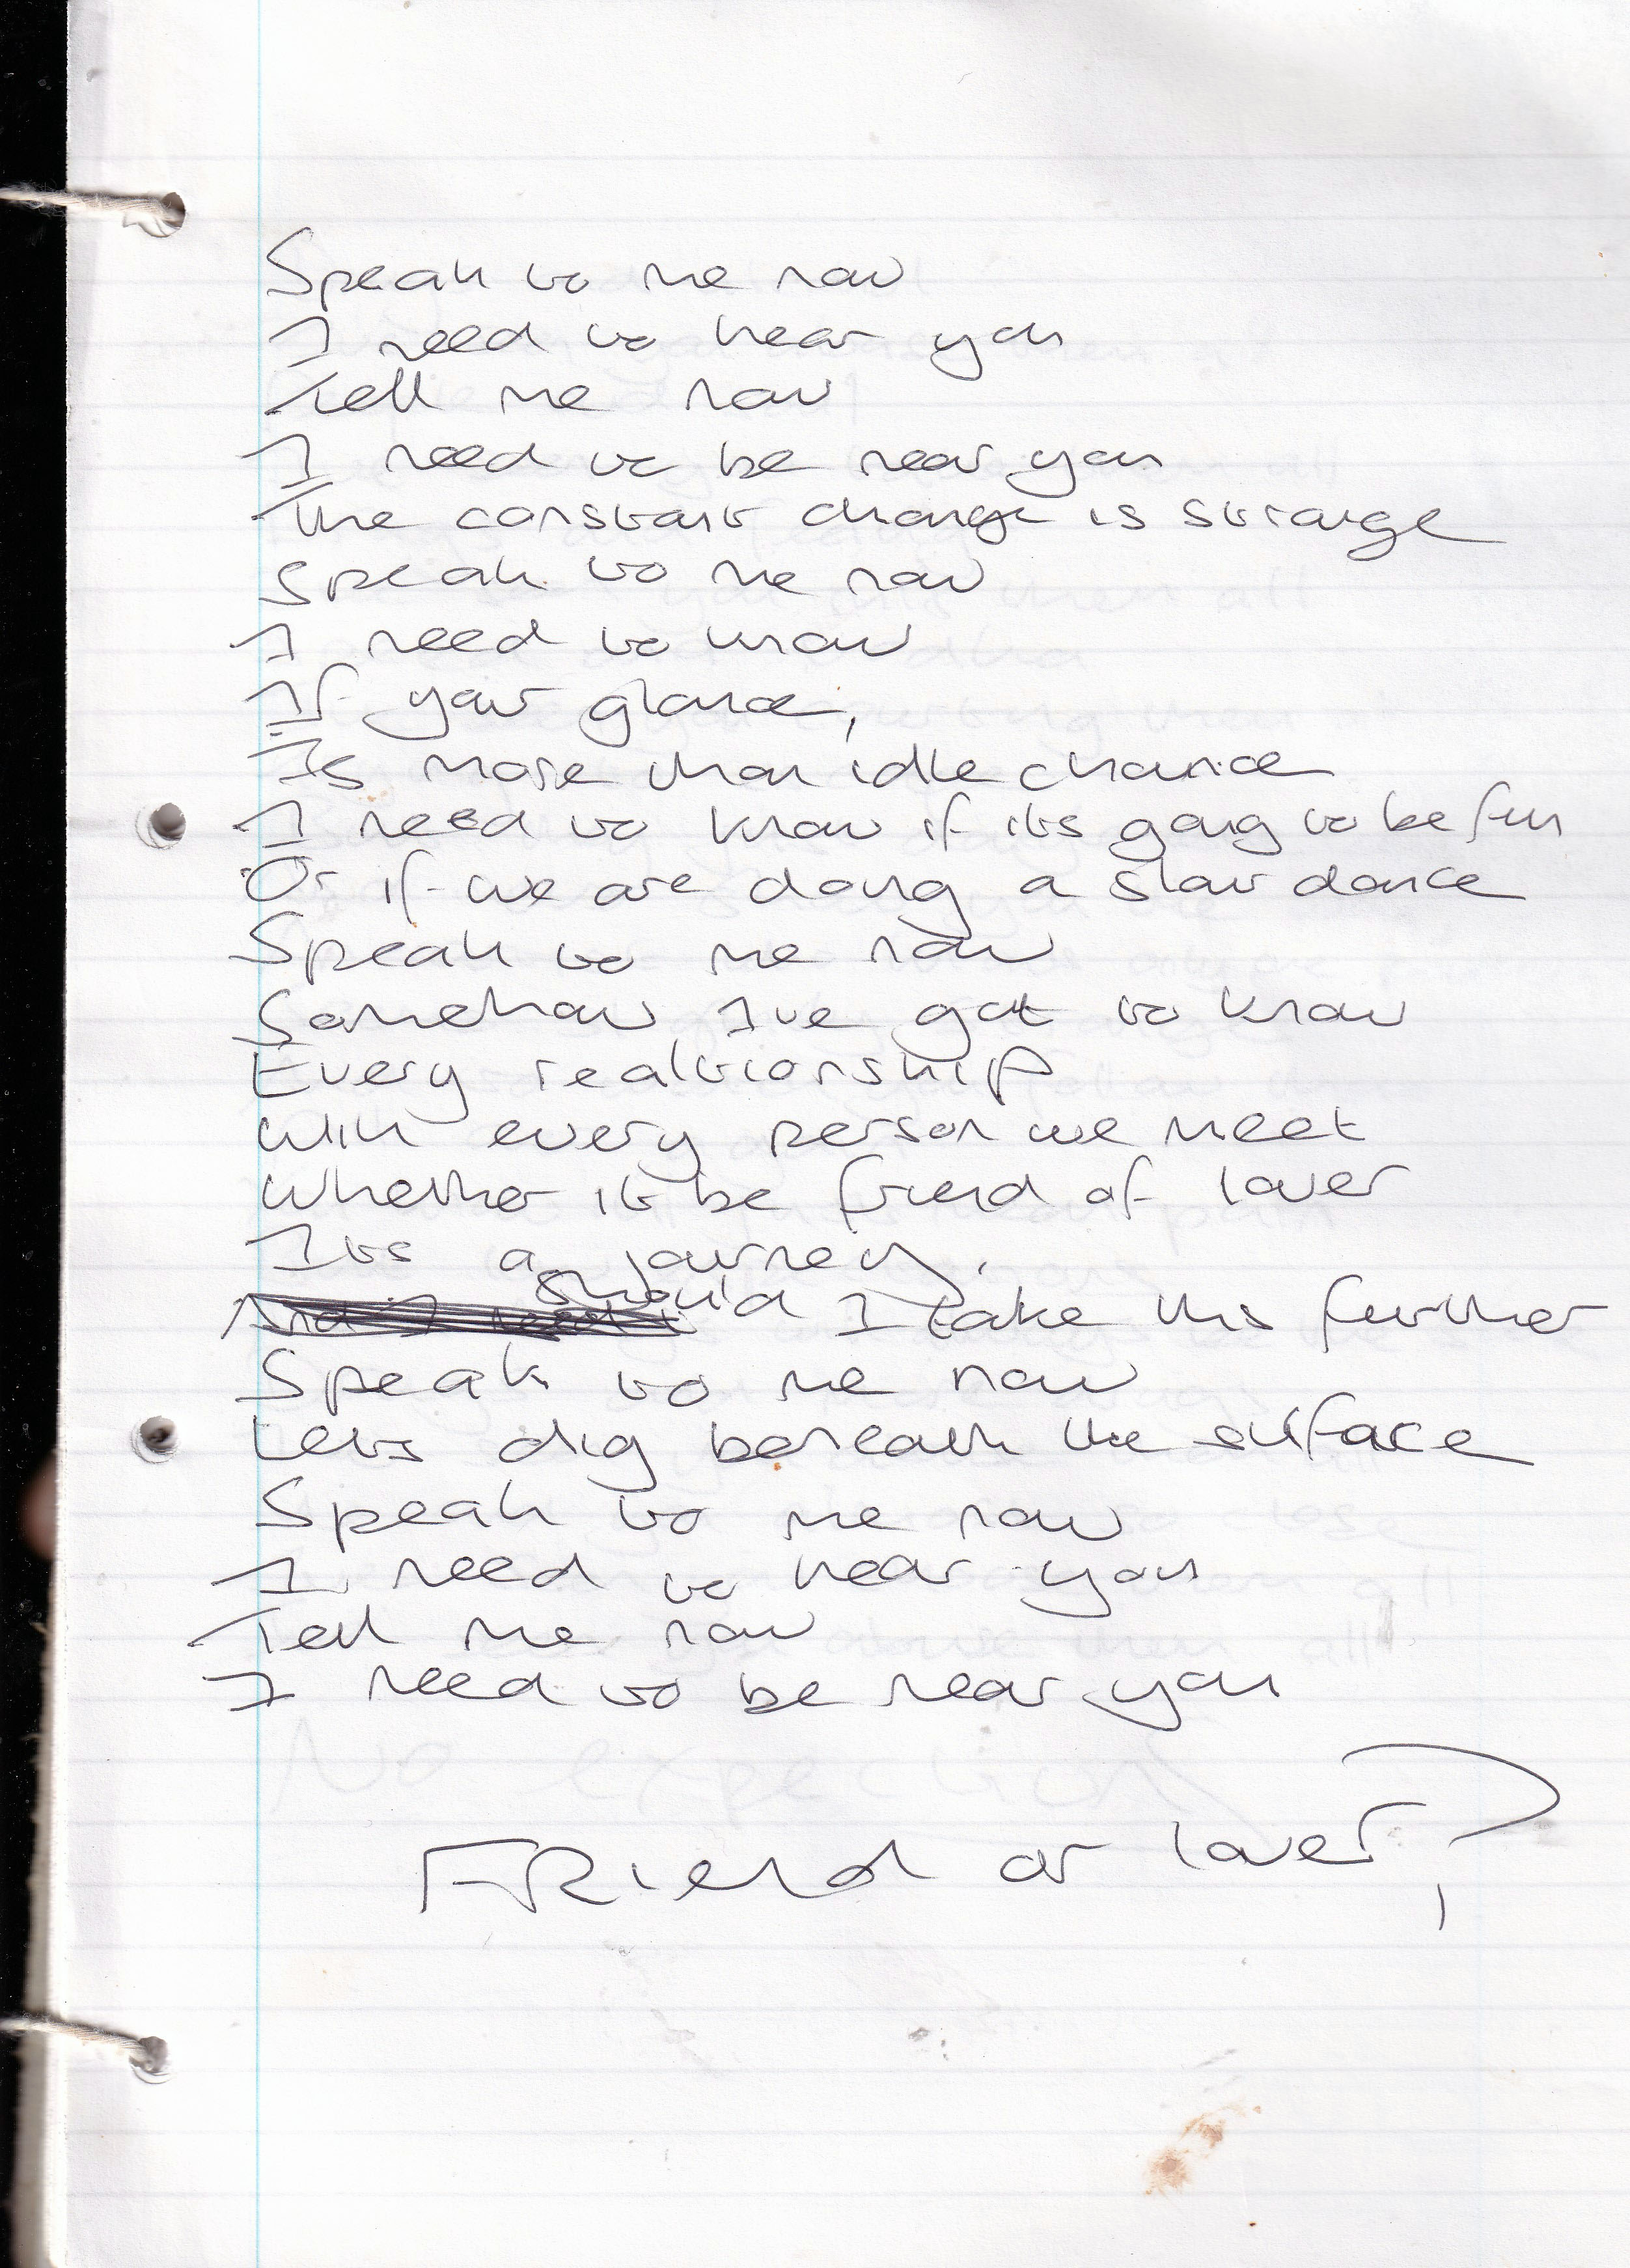 Speak to me now
I need to hear you
Tell me now
I need to be near you
The constant change is strange
Speak to me now
I need to know
If your glance,
Is more than idle chance
I need to know if its going to be fun
Or if we are doing a slow dance
Speak to me now
Somehow I've got to know
Every realtionship
With every person we meet
Whether it be friend of lover
Its a journey,
should I take this further
Speak to me now
Lets dig beneath the surface
Speak to me now
I need to hear you
Tell me now
I need to be near you
FRiend or lover?